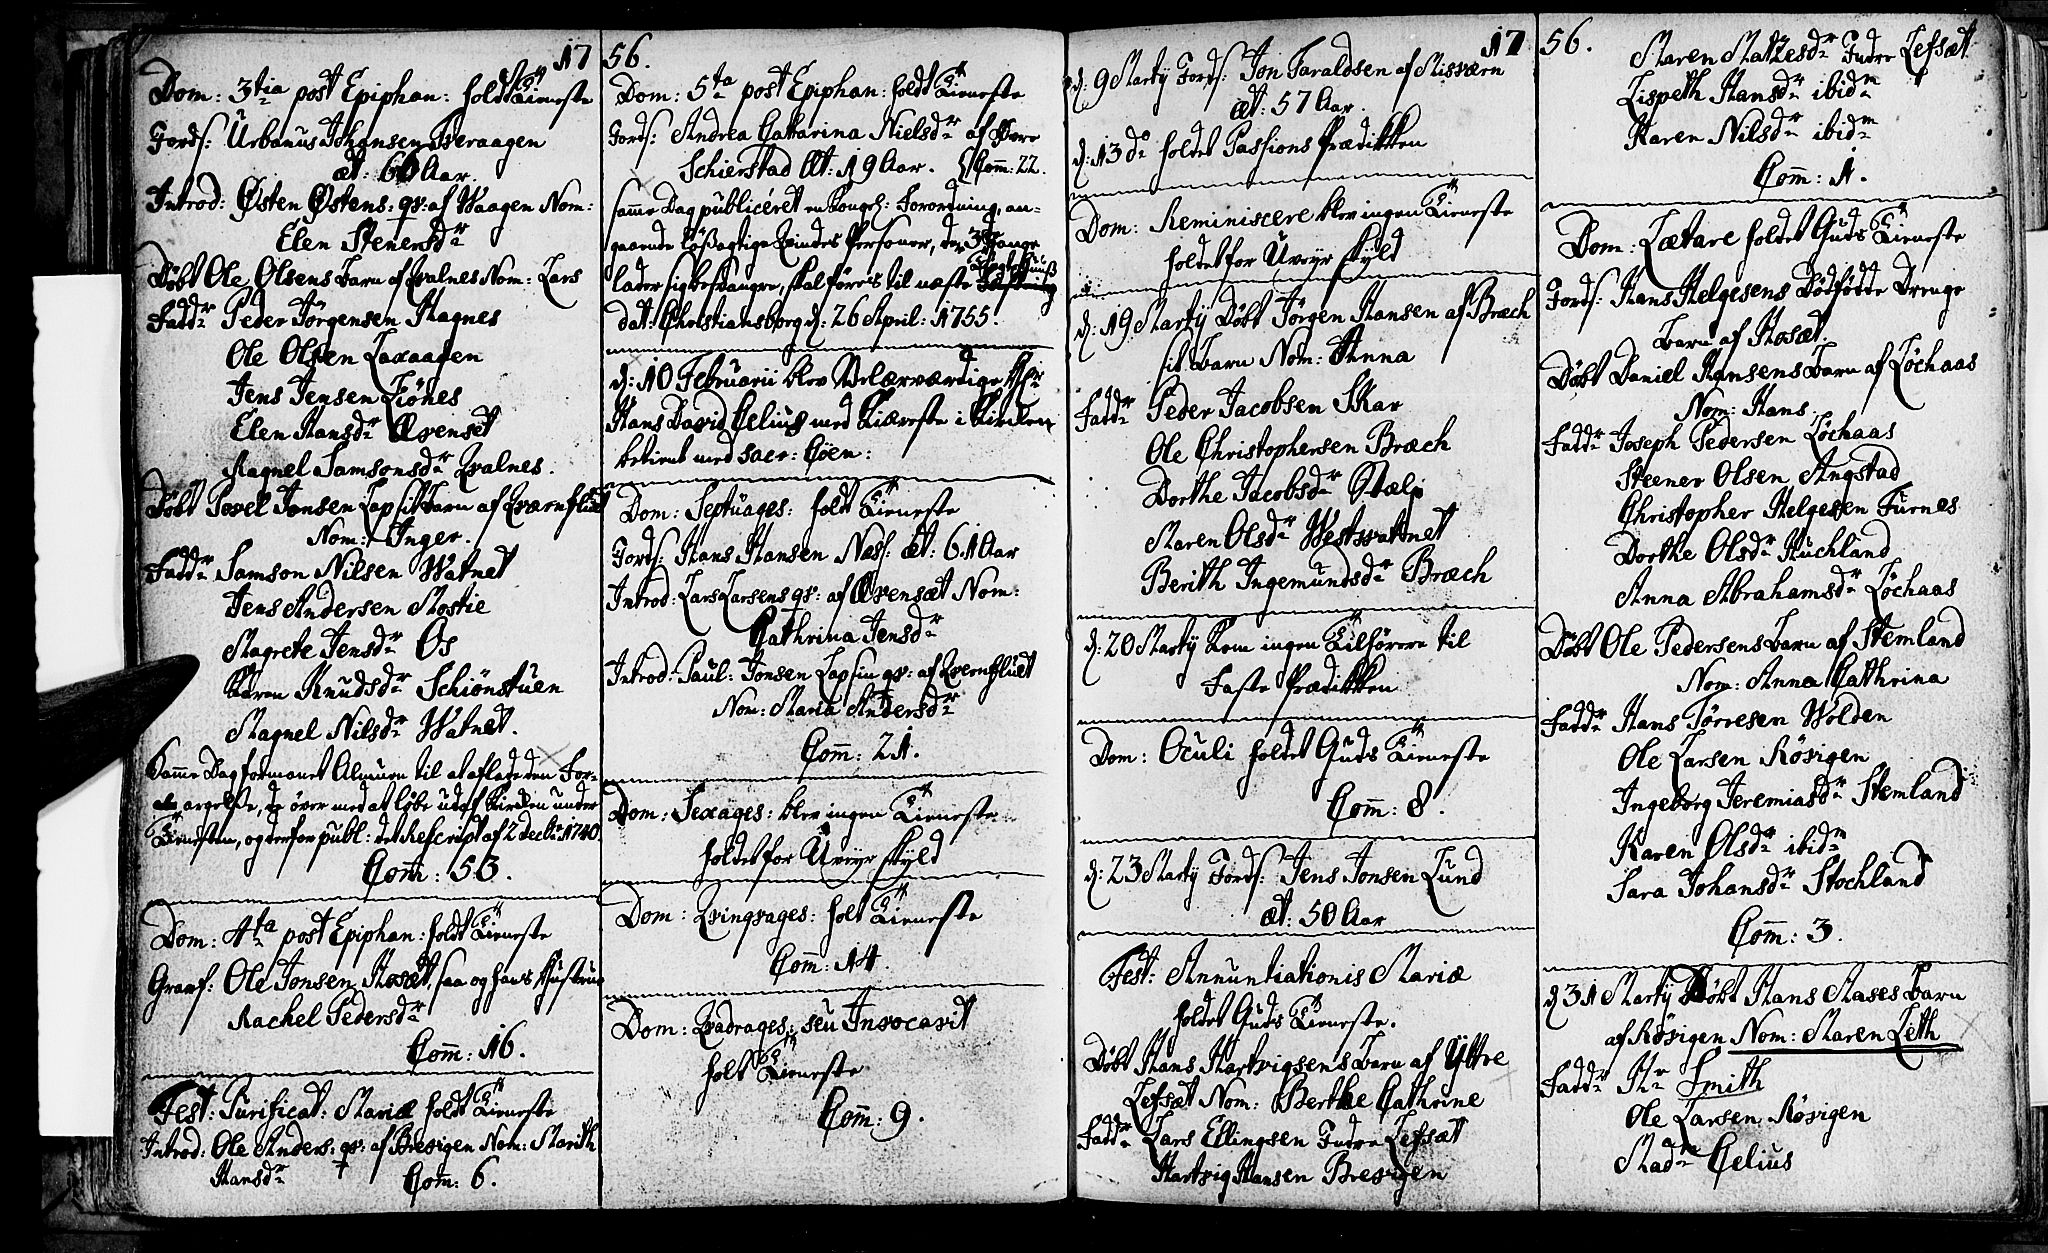 17
Dom: 3tia post Epiphan: holdt Tieneste
Fords: Urbanus Johansen Seraagen
æt: 66 Aar.
Introd: Østen Østens: qv: af Waagen Nom:
Elen Stenersdr
Døbt Ole Olsens Barn af Evalnes Nom: Lars
Faddr Peder Jørgensen Hagnes
Ole Olsen Laxaagen
Jens Jensen Tiönes
Elen Hansdr Ævenset
Ragnel Samsonsdr Evalnes.
Døbt Povel Jonsen Lap sit Barn af Qværnflut
Nom: Inger.
Faddr Samson Nilsen Watnet
Jens Andersen Mostie
Magrete Jensdr Os
Karen Knudsdr Schiönstuen
Magnel Nilsdr Watnet.
Samme Dag formanet Almuen til at aflade den For-
argelse, de över med at löbe ud af Kirken under
Tienesten, og derfor publ: det Rescript af 2 Decbr: 1740.
Com: 53.
Dom: 4ta post Epiphan: holdt Tieneste
Graaf: Ole Jonsen Mosæt, saa og hans Hustrue
Rachel Pedersdr
Com: 16.
Fest: Purificat: Mariæ holdt Tieneste
Introd: Ole Anders: qv: af Bresigen Nom: Marith
Hansdr Com: 6.
56.
Dom: 5ta post Epiphan: holdt Tieneste
Fords: Andrea Cattarina Nielsdr af Nere
Schierstad Æt: 19 Aar. Com: 22.
samme Dag publiceret en Kongel: Forordning, an-
gaaende lösagtige Qvindes Personer, der 3de gange
lader sig besvangre, skal föreis til næste Tugthuus
dat: Christiansborg d: 26 April: 1755.
d: 10 Februarii blev Velærværdige Hr
Hans David Celius med Kiæreste i Kirken
betient med sacr: Cöen:
Dom: Septuages: holdt Tieneste
Fords: Hans Hansen Næss: æt: 61 Aar
Introd: Lars Larsens qv: af Ævensæt Nom:
Cathrina Jensdr
Introd: Paul: Jonsen Lap sin qv: af Qvernflut
Nom: Maria Andersdr
Com: 21.
Dom: Sexages: blev ingen Tieneste
holdet for Uveyr skyld
Dom: Qvinqvages: holt Tieneste
Com: 14.
Dom: Qvadrages: seu Invocavit
holt Tieneste
Com: 9.
17
d: 9 Martij Fords: Jon Taraldsen af Missværn
æt: 57 Aar.
d: 13 do holdet Passions Prædikken
Dom: Reminiscere blev ingen Tieneste
holdet for Uveyr skyld
d: 19 Martij Döbt Jörgen Hansen af Bræch
sit Barn Nom: Anna
Faddr Peder Jacobsen Skar
Ole Christophersen Bræch
Dorthe Jacobsdr Stælp
Maren Olsdr Westvattnet
Berith Ingemundsdr Bræch
d: 20 Martij Kom ingen Tilhörere til
Faste Prædikken
Dom: Oculi holdet Guds Tieneste
Com: 8.
d: 23 Martij Fords: Jens Jonsen Lund
æt: 50 Aar
Fest: Annuntiationis Mariæ
holdet Guds Tieneste.
Döbt Hans Hartvigsens Barn af Ÿttre
Lefsæt Nom: Berthe Cathrine
Faddr Lars Ellingsen Indre Lefsæt
Hartvig Hansen Bresigen
56.
Maren Matkesdr Indre Lefsæt
Lispeth Hansdr ibidm
Karen Nilsdr ibidm
Com: 1.
Dom: Lætare holdet Guds Tieneste
Fords: Hans Helgesens Dödfödte Drenge
Barn af Mosæt
Döbt Daniel Hansens Barn af Löchaas
Nom: Hans
Faddr Joseph Pedersen Löchaas
Steener Olsen Angstad
Christopher Helgesen Furnes
Dorthe Olsdr Huchland
Anna Abrahamsdr Löchaas
Döbt Ole Pedersens Barn af Stemland
Nom: Anna Cathrina
Faddr Hans Törresen Wolden
Ole Larsen Rösvigen
Ingeborg Jeremiasdr Stemland
Karen Olsdr ibidm
Sara Johansdr Stochland
Com: 3.
d: 31 Martij Döbt Hans Mases Barn
af Rösvigen Nom: Maren Leth
Faddr Hr Smith
Ole Larsen Rösigen
Madme Celius